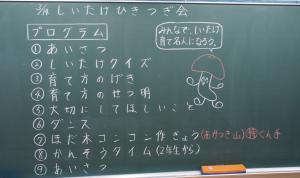 3/18 しいたけひきつぎ会
プログラム
みんなで、しいたけ
育て名人になろう。
①あいさつ
②しいたけクイズ
③育て方のげき
④育て方のせつ明
⑤大切にしてほしいこと
⑥ダンス
⑦ほだ木コンコン作ぎょう(あかつき山) ぐん手
⑧かんそうタイム(2年生から)
⑨あいさつ